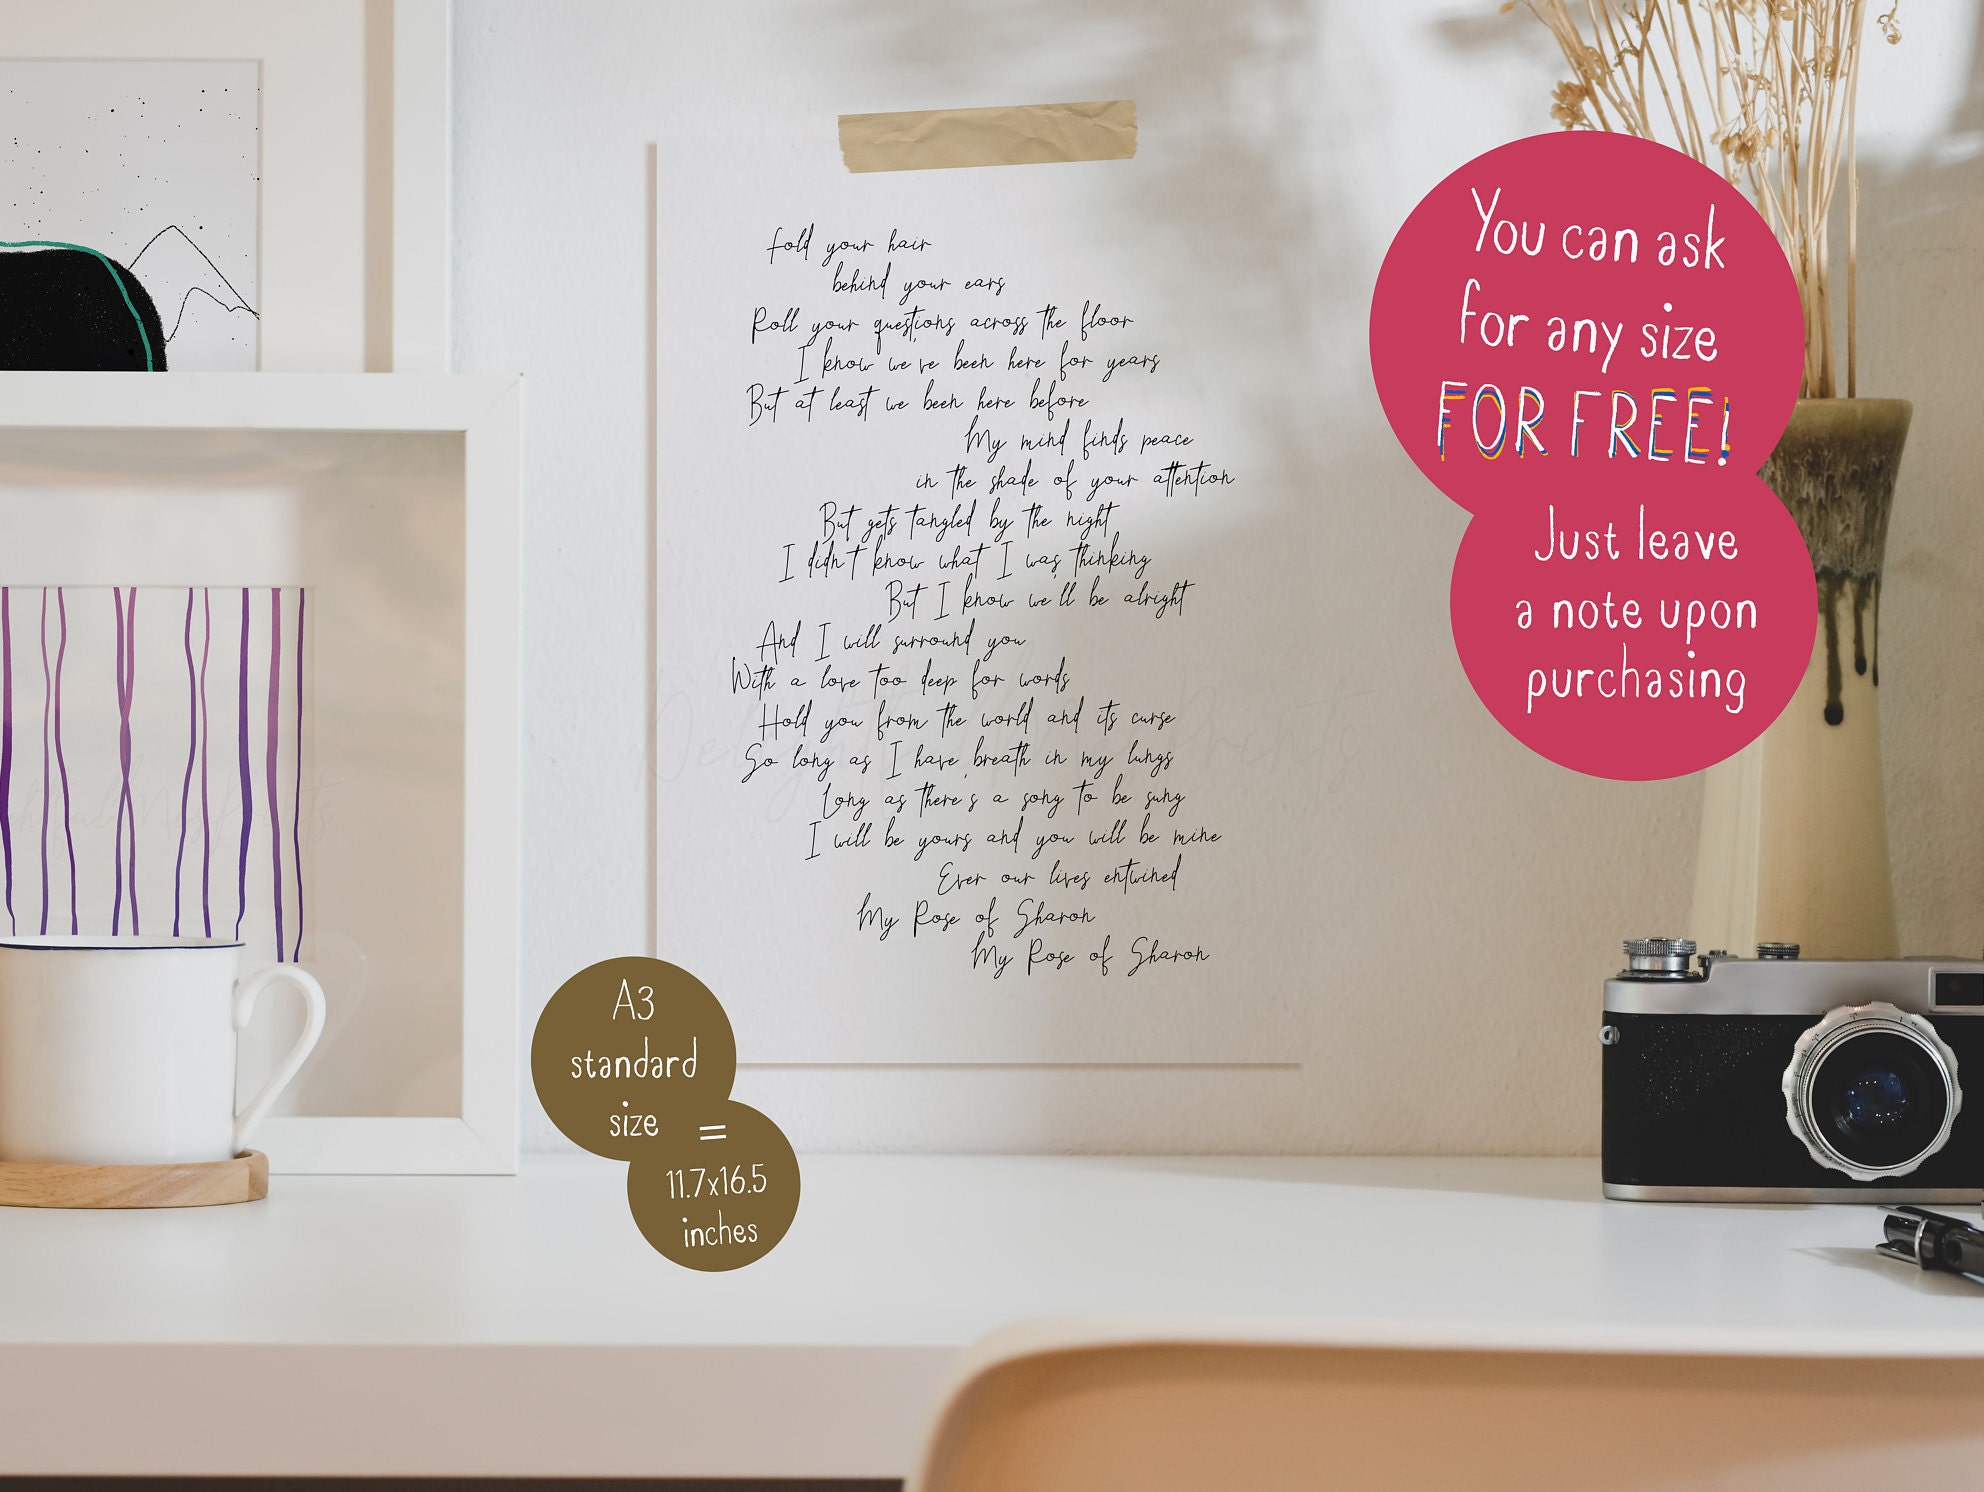 Fold your hair
behind your ears
Roll your questions across the floor
I know we've been here for years
But at least we been here before
My mind finds peace
in the shade of your attention
But gets tangled by the night
I didn't know what I was thinking
But I know we'll be alright
And I will surround you
With a love too deep for words
Hold you from the world and its curse
So long as I have breath in my lungs
Long as there's a song to be sung
I will be yours and you will be mine
Ever our lives entwined
My Rose of Sharon
My Rose of Sharon
You can ask
for any size
FOR FREE!
Just leave
a note upon
purchasing
A3
standard
size =
11.7x16.5
inches